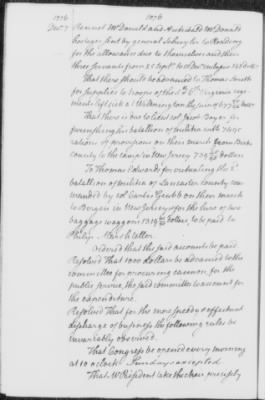 1776 1776
Dec. 7. Samuel McDonald and Archibald McDonald
hostages sent by general Schuyler to Reading
for the allowance due to themselves and their
three servants from 25 Septr. to 1st Dec. inclusive 126 dollars
That there should be advanced to Thomas Smith
for supplies to troops of the 5 & 6 Virginia regi
ments left sick at Wilmington the sum of dollars
That there is due to lieut. col. Jacob Boyer for
furnishing his battalion of militia with 7495
rations of provisions on their march from Berks
county to the camp in New Jersey dollars
To Thomas Edwards for victualing the 8th
battalion of militia of Lancaster County com
manded by col. Curtis Grubb on their march
to Bergen in New Jersey & for the hire of two
baggage waggons dollars, to be paid to
Philip Marsteller
Ordered that the said accounts be paid.
Resolved That 1000 dollars be advanced to the
committee for procuring cannon, for the
public service, the said committee to account for
the expenditure.
Resolved That for the more speedy & effectual
discharge of business the following rules be
invariably observed.
That Congress be opened every morning
at 10 o'clock Sundays excepted
That Mr President take the chair precisely